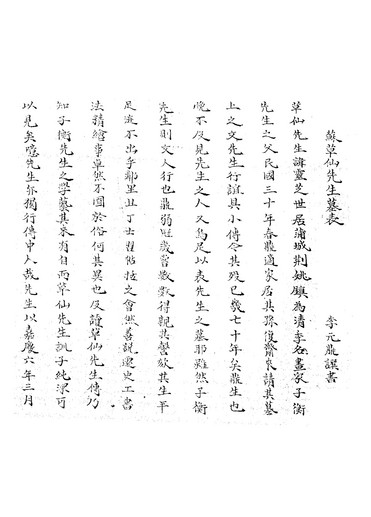 蘇草仙先生墓表
李元鼎譔書
草仙先生諱靈芝世居蒲城荆姚鎮為清季名畫家子衡
先生之父民國三十年春鼎適家居其孫俊齋來請其墓
上之文先生行誼具小傳今其歿已幾七十年矣鼎生也
晚不及見先生之人又烏足以表先生之墓耶雖然子衡
先生則文人行也鼎弱冠嵗嘗數數得親其謦欬其生平
足迹不出乎鄰里且丁士習佔括之會然善說遷史工書
法精繪事卓然不囿於俗何其異也及讀草仙先生傳乃
知子衡先生之學藝其來有自而草仙先生訓子純深可
以見矣噫先生亦獨行傳中人哉先生以嘉慶六年三月